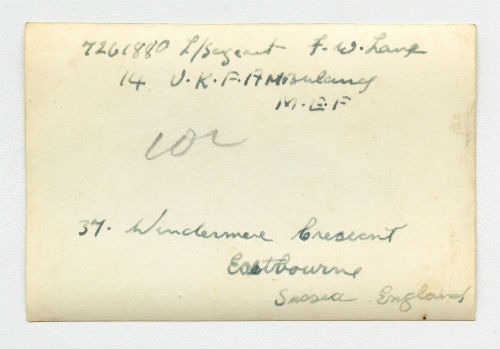 7261880 L/Sergeant F. W. Lane
14 U.K.F. Ambulance
M.E.F
102
37. Windermere Crescent
Eastbourne
Sussex England